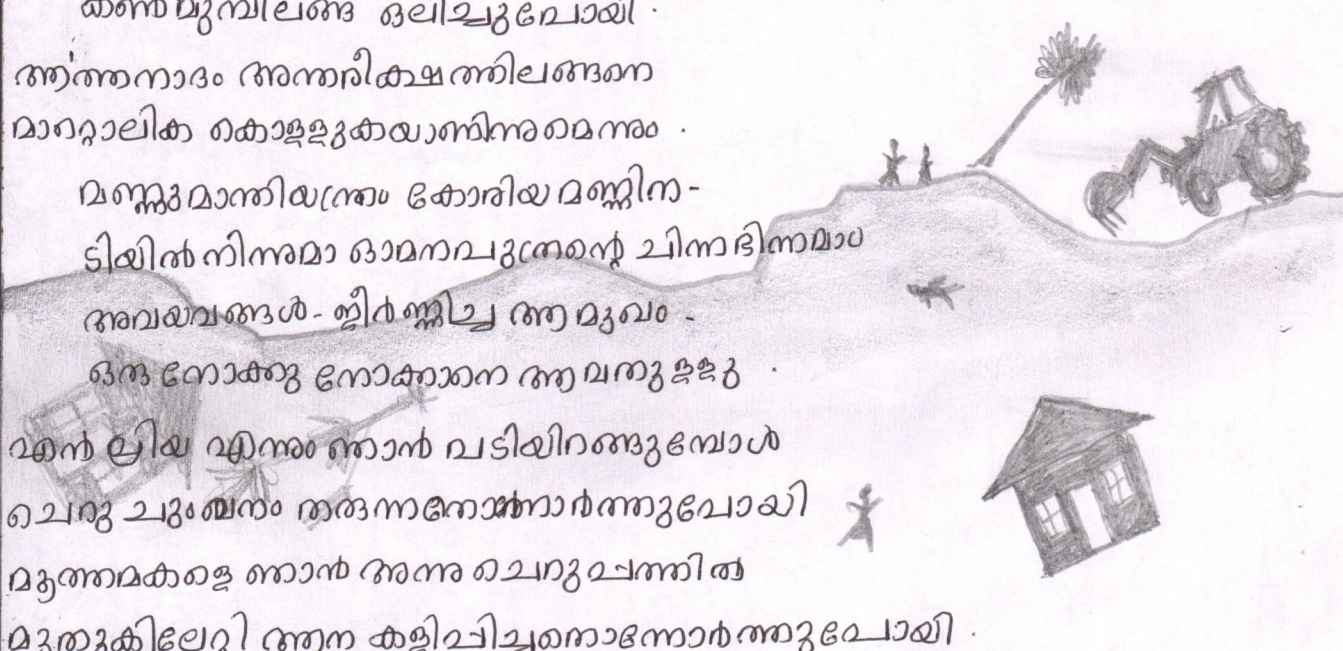 കൺമുമ്പിലങ്ങ ഒലിച്ചുപോയി .
ആർത്തനാദം അന്തരീക്ഷത്തിലങ്ങനെ
മാറ്റൊലിക കൊള്ളുകയാണിന്നുമെന്നും .
മണ്ണുമാന്തിയന്ത്രം കോരിയ മണ്ണിന-
ടിയിൽ നിന്നുമാ ഓമനപുത്രന്റെ ചിന്നഭിന്നമാം
അവയവങ്ങൾ - ജീർണ്ണിച്ച ആ മുഖം -
ഒരു നോക്കു നോക്കാനെ ആവതുള്ളു .
എൻ പ്രിയ എന്നും ഞാൻ പടിയിറങ്ങുമ്പോൾ
ചെറു ചുംബനം തരുന്നതോർത്തുപോയി
മൂത്തമകളെ ഞാൻ അന്നു ചെറുപ്പത്തിൽ
മുതുകിലേറ്റി ആന കളിപ്പിച്ചതൊന്നോർത്തുപോയി .